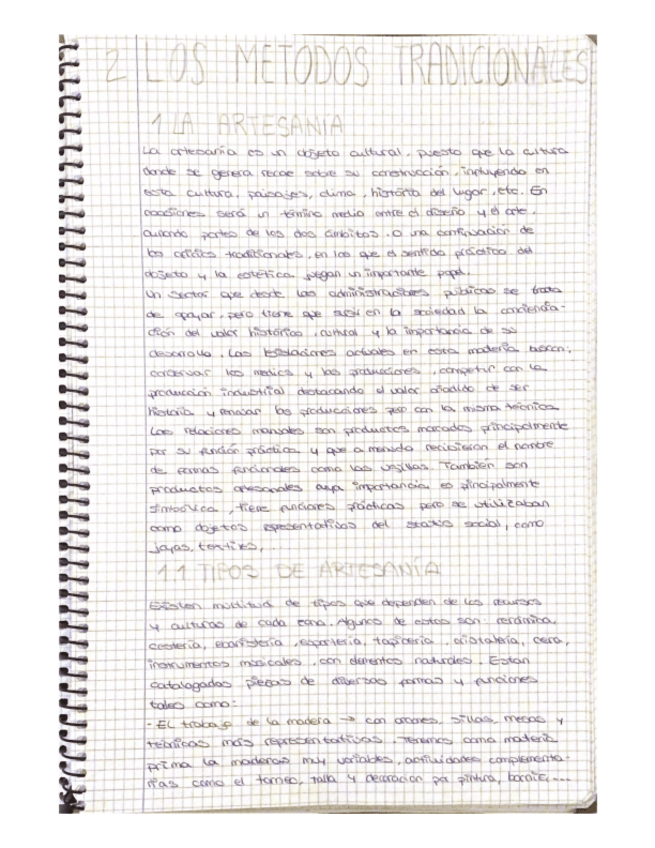 2 LOS METODOS TRADICIONALES
1 LA ARTESANIA
La artesanía es un objeto cultural, puesto que la cultura
donde se genera recae sobre su construcción, influyendo en
esta cultura, paisajes, clima, historia del lugar, etc. En
ocasiones será un término medio entre el diseño y el arte,
partes de los dos ámbitos. O una continuación de
los oficios tradicionales, en los que el sentido práctico del
objeto y la estética juegan un importante papel.
Un sector que desde las administraciones públicas se trata
de apoyar, pero tiene que en la sociedad la conciencia-
ción del valor histórico, cultural y la importancia de su
desarrollo. Las actuales en esta materia buscan:
conservar los medios y las producciones, competir con la
producción industrial destacando el valor añadido de ser
historia y renovar las producciones pero con la misma técnica
Las relaciones manuales son productos marcados principalmente
por su función práctica y que a menudo recibieron el nombre
de formas funcionales como las vajillas. También son
productos artesanales cuya importancia es principalmente
simbólica, tiene funciones prácticas pero se utilizaban
como objetos representativos del status social, como
joyas, textiles,...
1.1 TIPOS DE ARTESANÍA
Existen multitud de tipos que dependen de los recursos
y culturas de cada zona. Algunos de estos son: cerámica,
cestería, ebanistería, espartería, tapicería, cristalería, cera,
instrumentos musicales, con elementos naturales. Estan
catalogadas piezas de diversas formas y funciones
tales como:
- EL trabajo de la madera → con arcones, sillas, mesas y
técnicas más representativas. Tenemos como materia
prima la maderas muy variables, actividades complementa-
rias como el torneo, talla y decoración por pintura, barniz,...